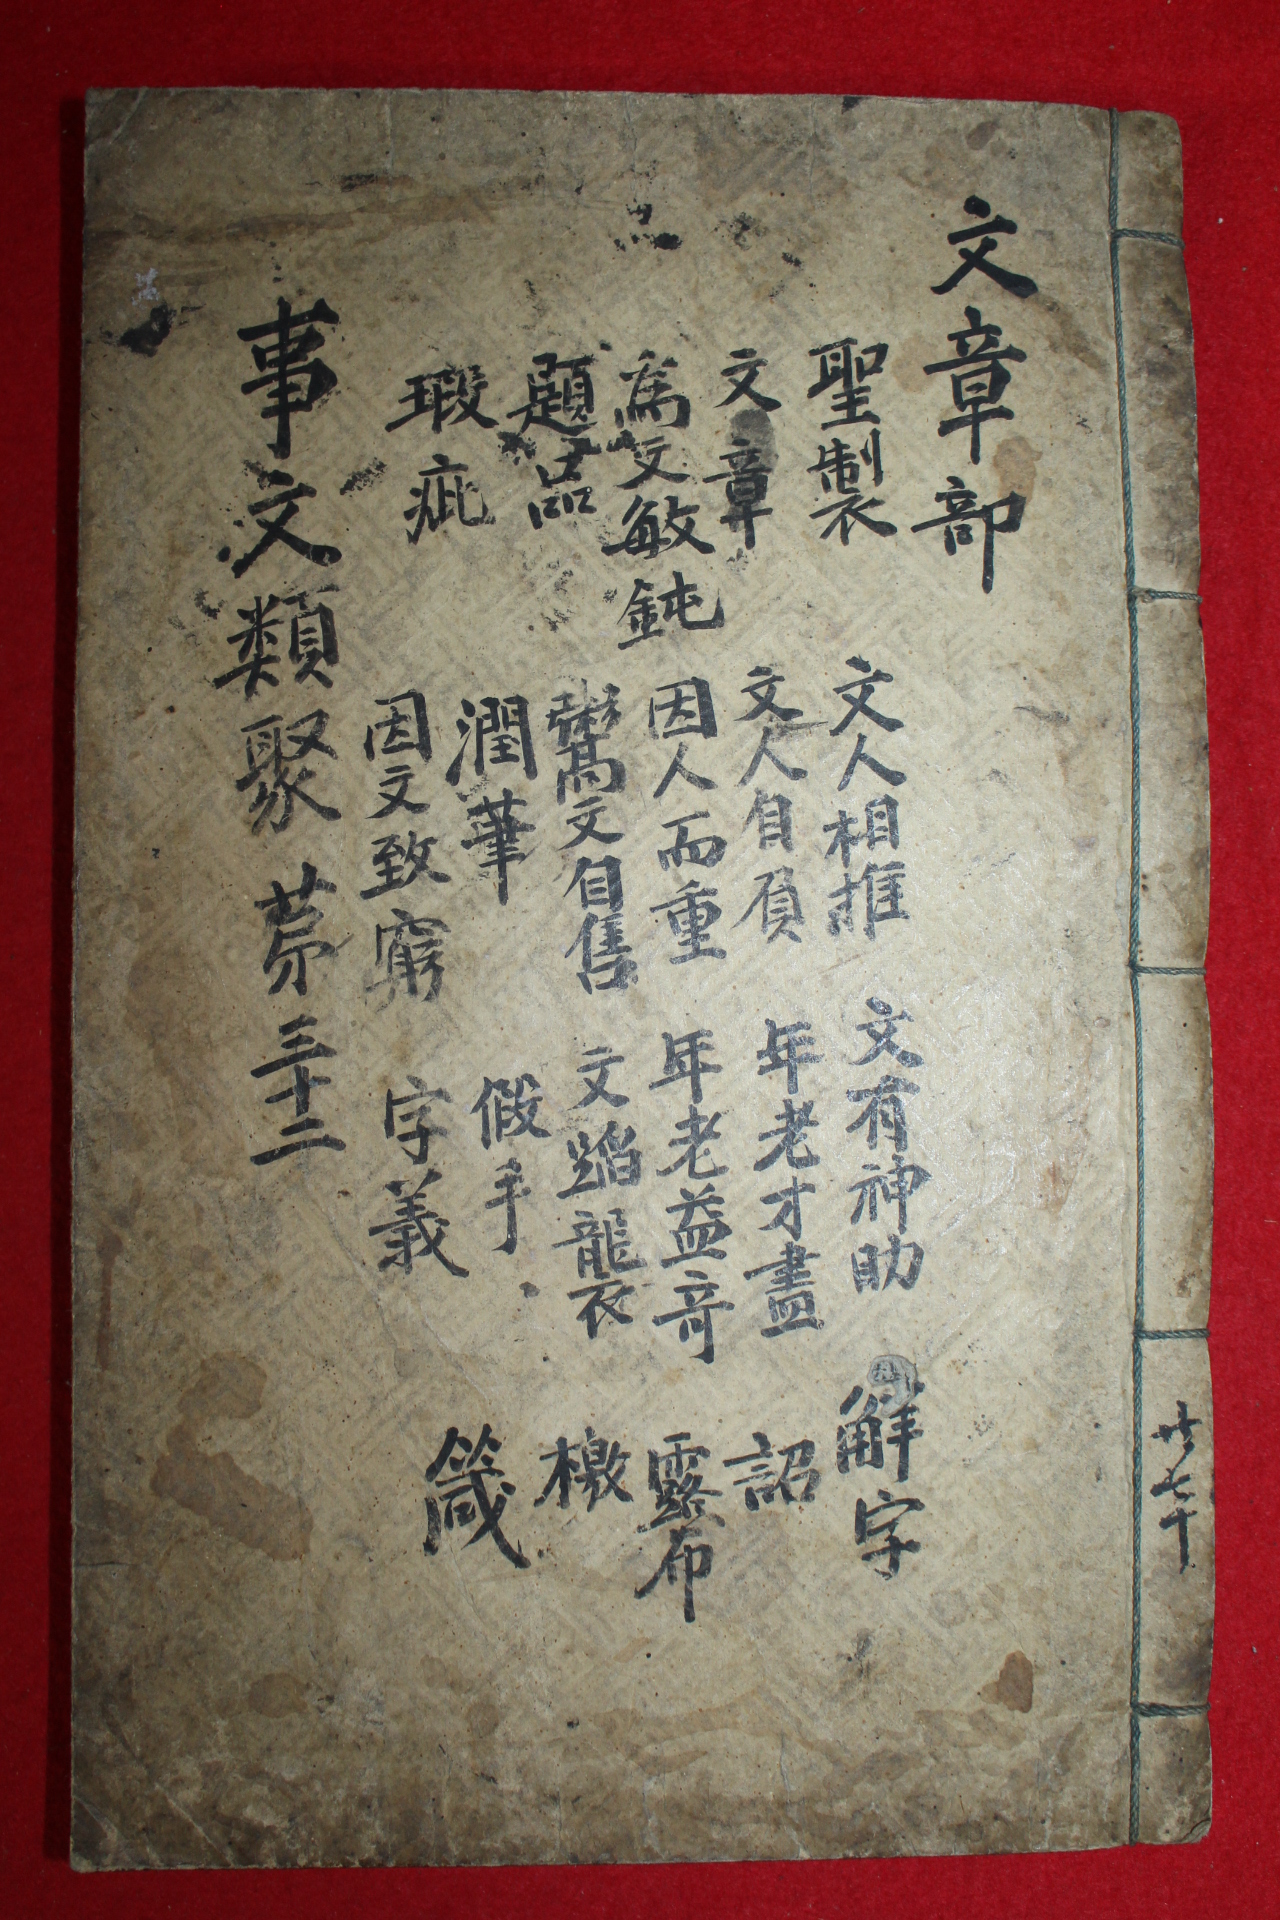 文章部
聖製 文人相推 文有神助 觧字
文章 文人自負 年老才盡 詔
爲文敏鈍 因人而重 年老益竒 露布
題品 鬻文自售 文蹈襲 檄
瑕疵 潤筆 假手 箴
因文致窮 字義
事文類聚 苐三十二
共七十